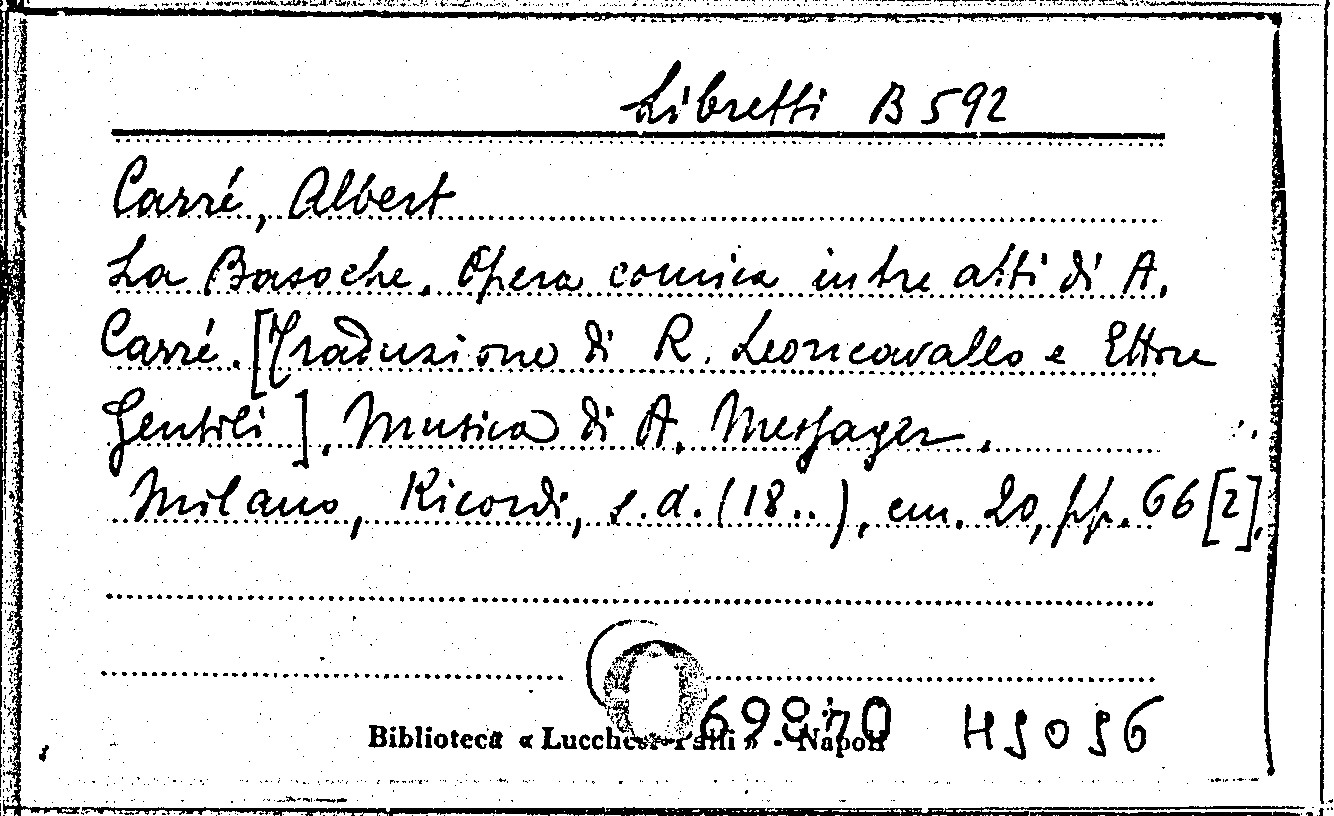 Libretti B 592
Carré, Albert
La Basoche. Opera comica in tre atti di A.
Carré. [Traduzione di R. Leoncavallo e Ettore
Gentili]. Musica di A. Messager.
Milano, Ricordi, s.d. (18..), cm. 20, pp. 66 [2].
Biblioteca « Lucchesi-Palli » - Napoli